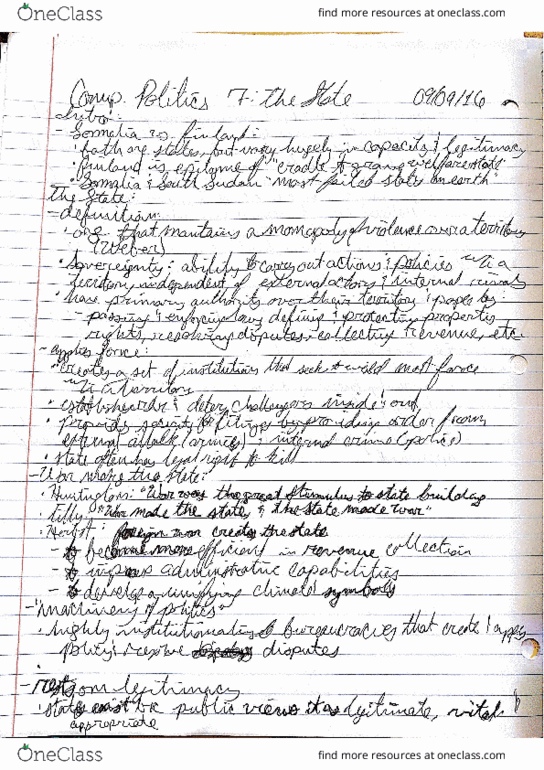 OneClass
find more resources at oneclass.com
Comp. Politics 7: the State 09/09/16
Intro:
- Somalia vs Finland:
• both are states, but vary hugely in capacity & legitimacy
• Finland is epitome of "cradle to grave welfare state"
• Somalia & South Sudan "most failed states on earth"
the State:
- definition:
• org. that maintains a monopoly of violence over a territory
(Weber)
• Sovereignty: ability to carry out actions & policies w/in a
territory independent of external actors & internal rivals
• have primary authority over their territory & people by:
- passing & enforcing laws, defining & protecting properties
rights, resolving disputes, collecting revenue, etc.
- applies force:
• creates a set of institutions that seek to wield most force
w/in a territory
• establish order & deter challengers inside & out
• provides security to citizens by providing order from
external attack (armies) & internal crime (police)
• state often has legal right to kill
- War makes the state:
• Huntington: "War was the great stimulus to state building
• Tilly: "War made the state, & the state made war"
• Herbst: foreign war creates the state
- to become more efficient in revenue collection
- to improve administrative capabilities
- to develop a unifying climate & symbols
- "machinery of politics"
• highly institutionalized bureaucracies that create & apply
policy & resolve disputes
- rest on legitimacy
• state must be public views it as legitimate, vital &
appropriate
OneClass
find more resources at oneclass.com